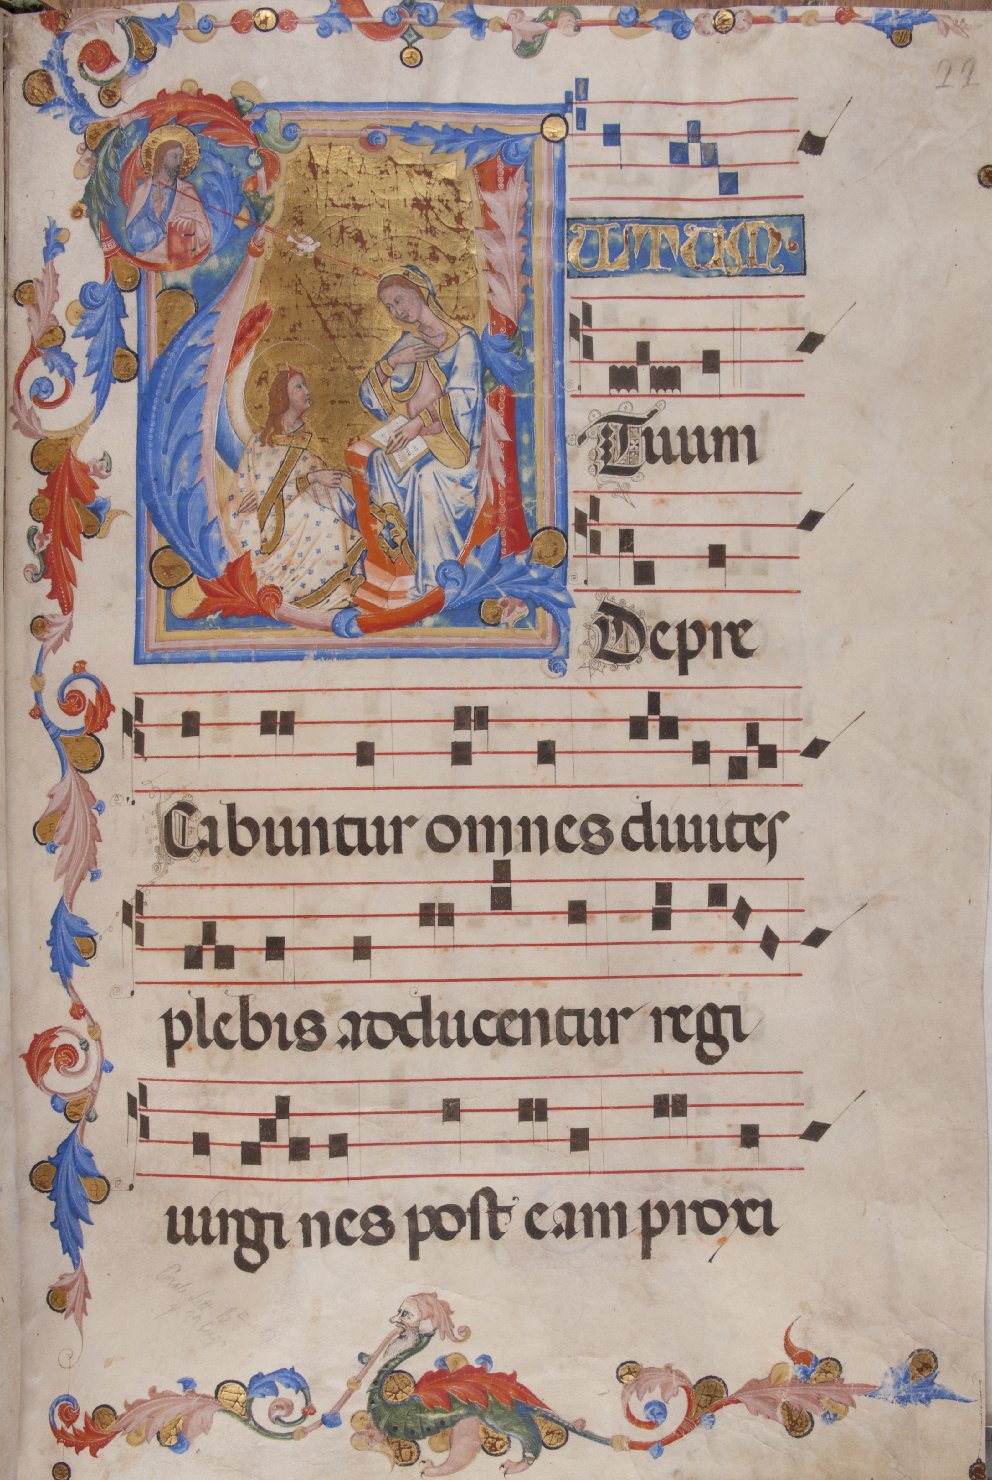 22
VULTUM
Tuum
Depre
Cabuntur omnes diuites
plebis adducentur regi
uirgines post eam proxi